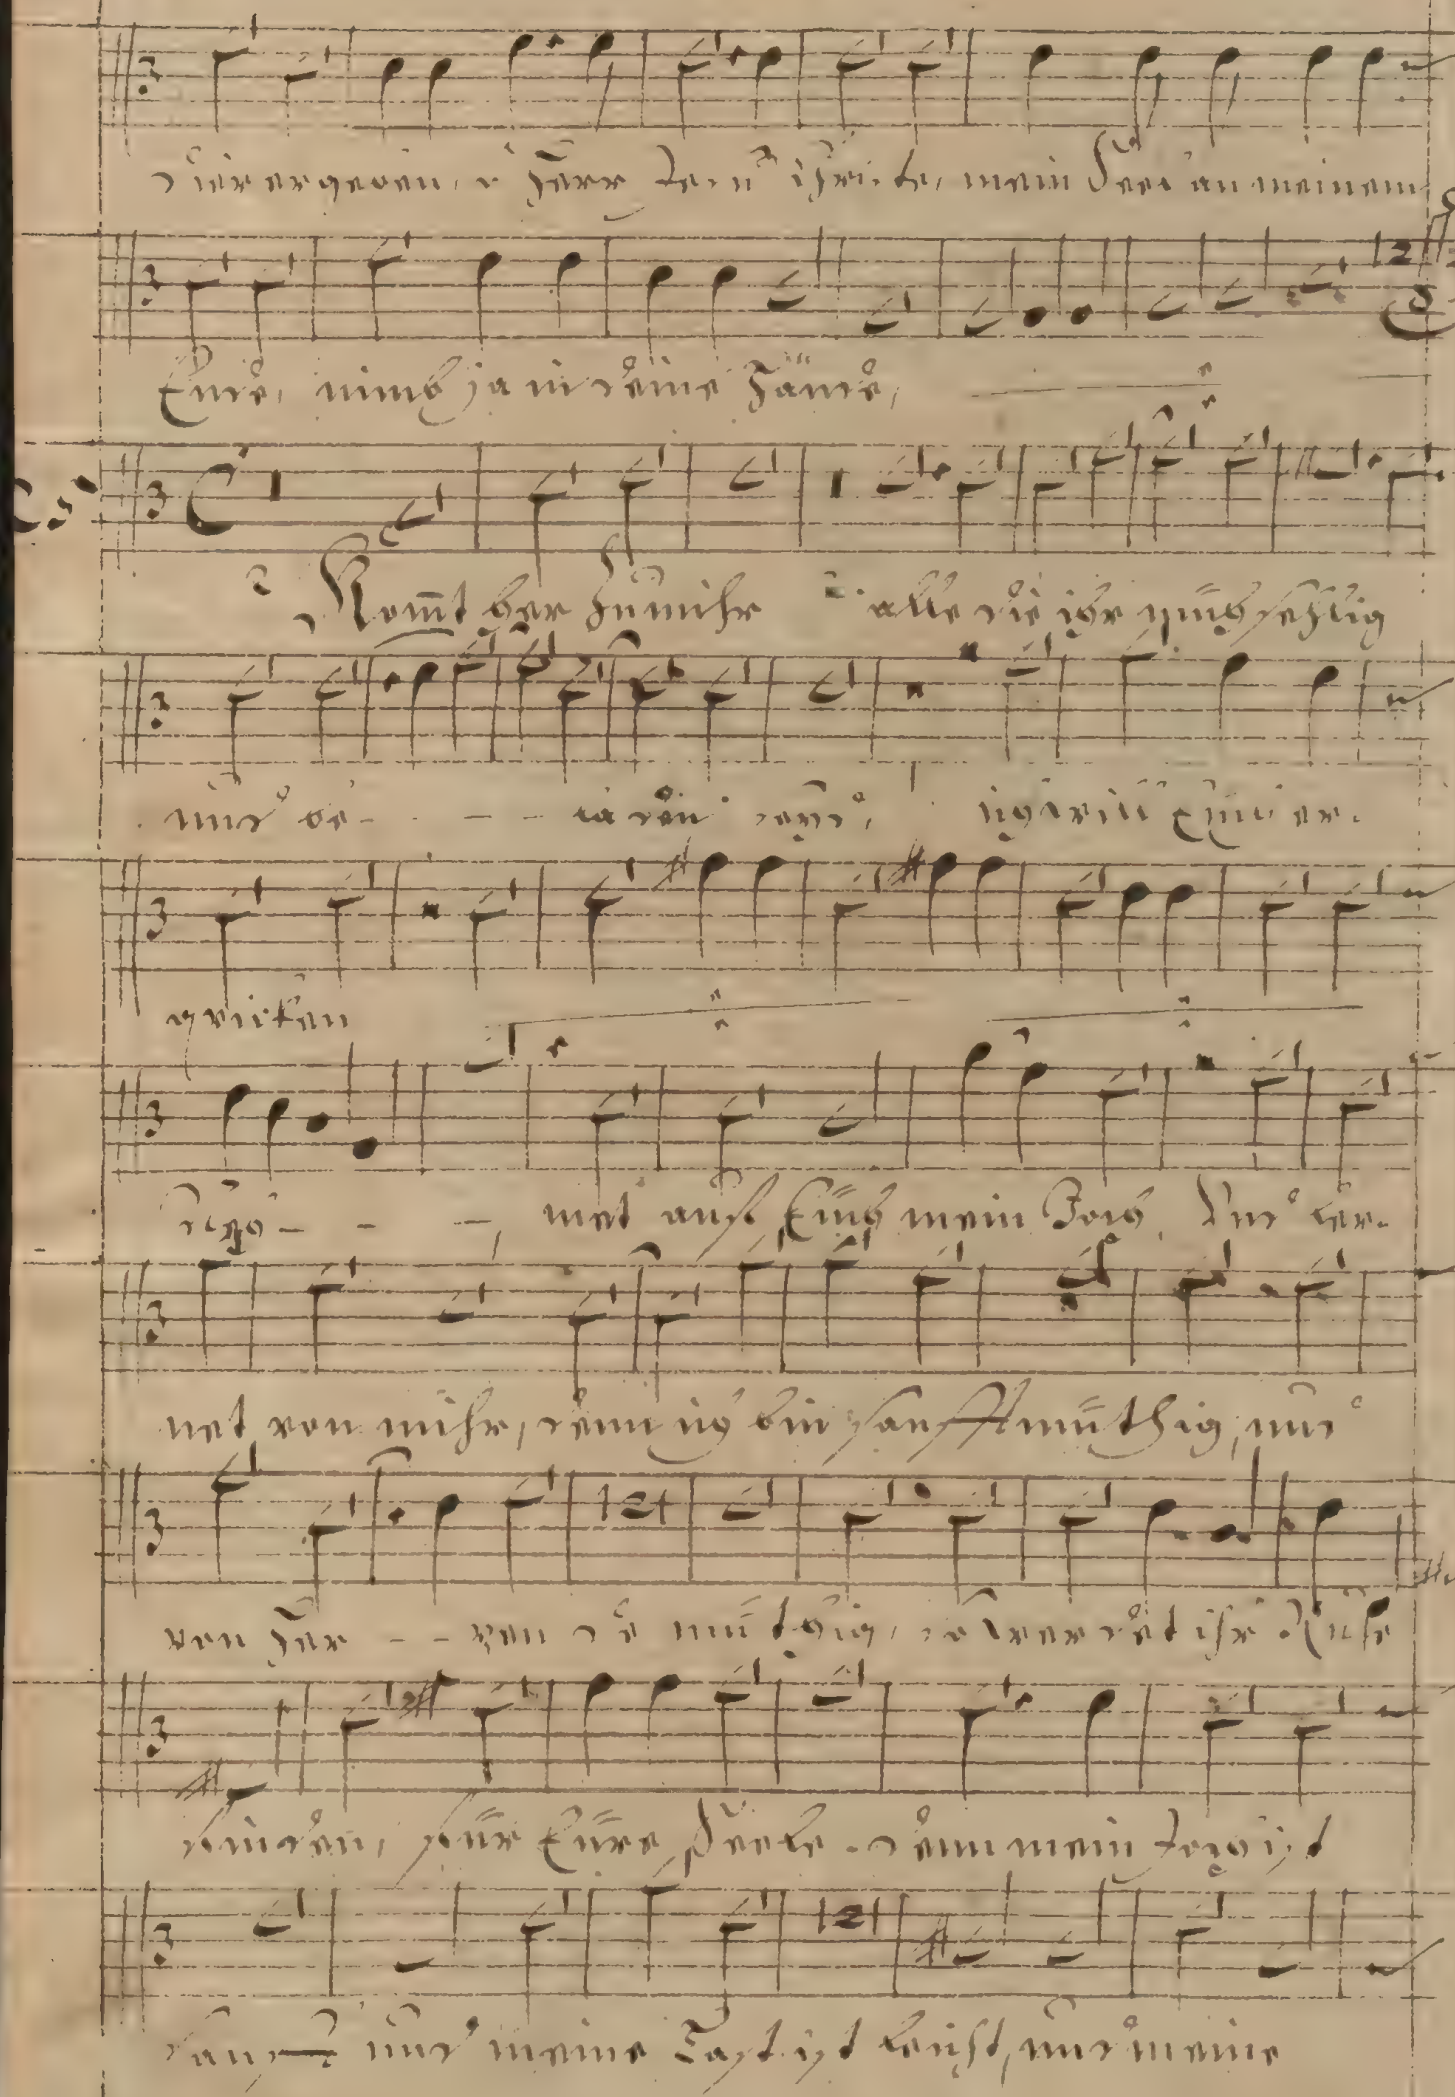 dier ergeben, o Herr Jesu Christe, mein Seel an meinem
Ende, nimb ja in deine Hände,
Kom̄t her zu mihr alle die ihr mühsehlig
und be - - - laden seyd, ich will Euch er-
qvicken
Nehmet auff Euch mein Joch, Und ler-
net von mihr, denn ich bin sanfftmüthig, und
von Her - - zen de müthig, so werdet ihr Ruhe
finden, für Eure Seele. denn mein Joch ist
sanfft und meine Last ist leicht, und meine